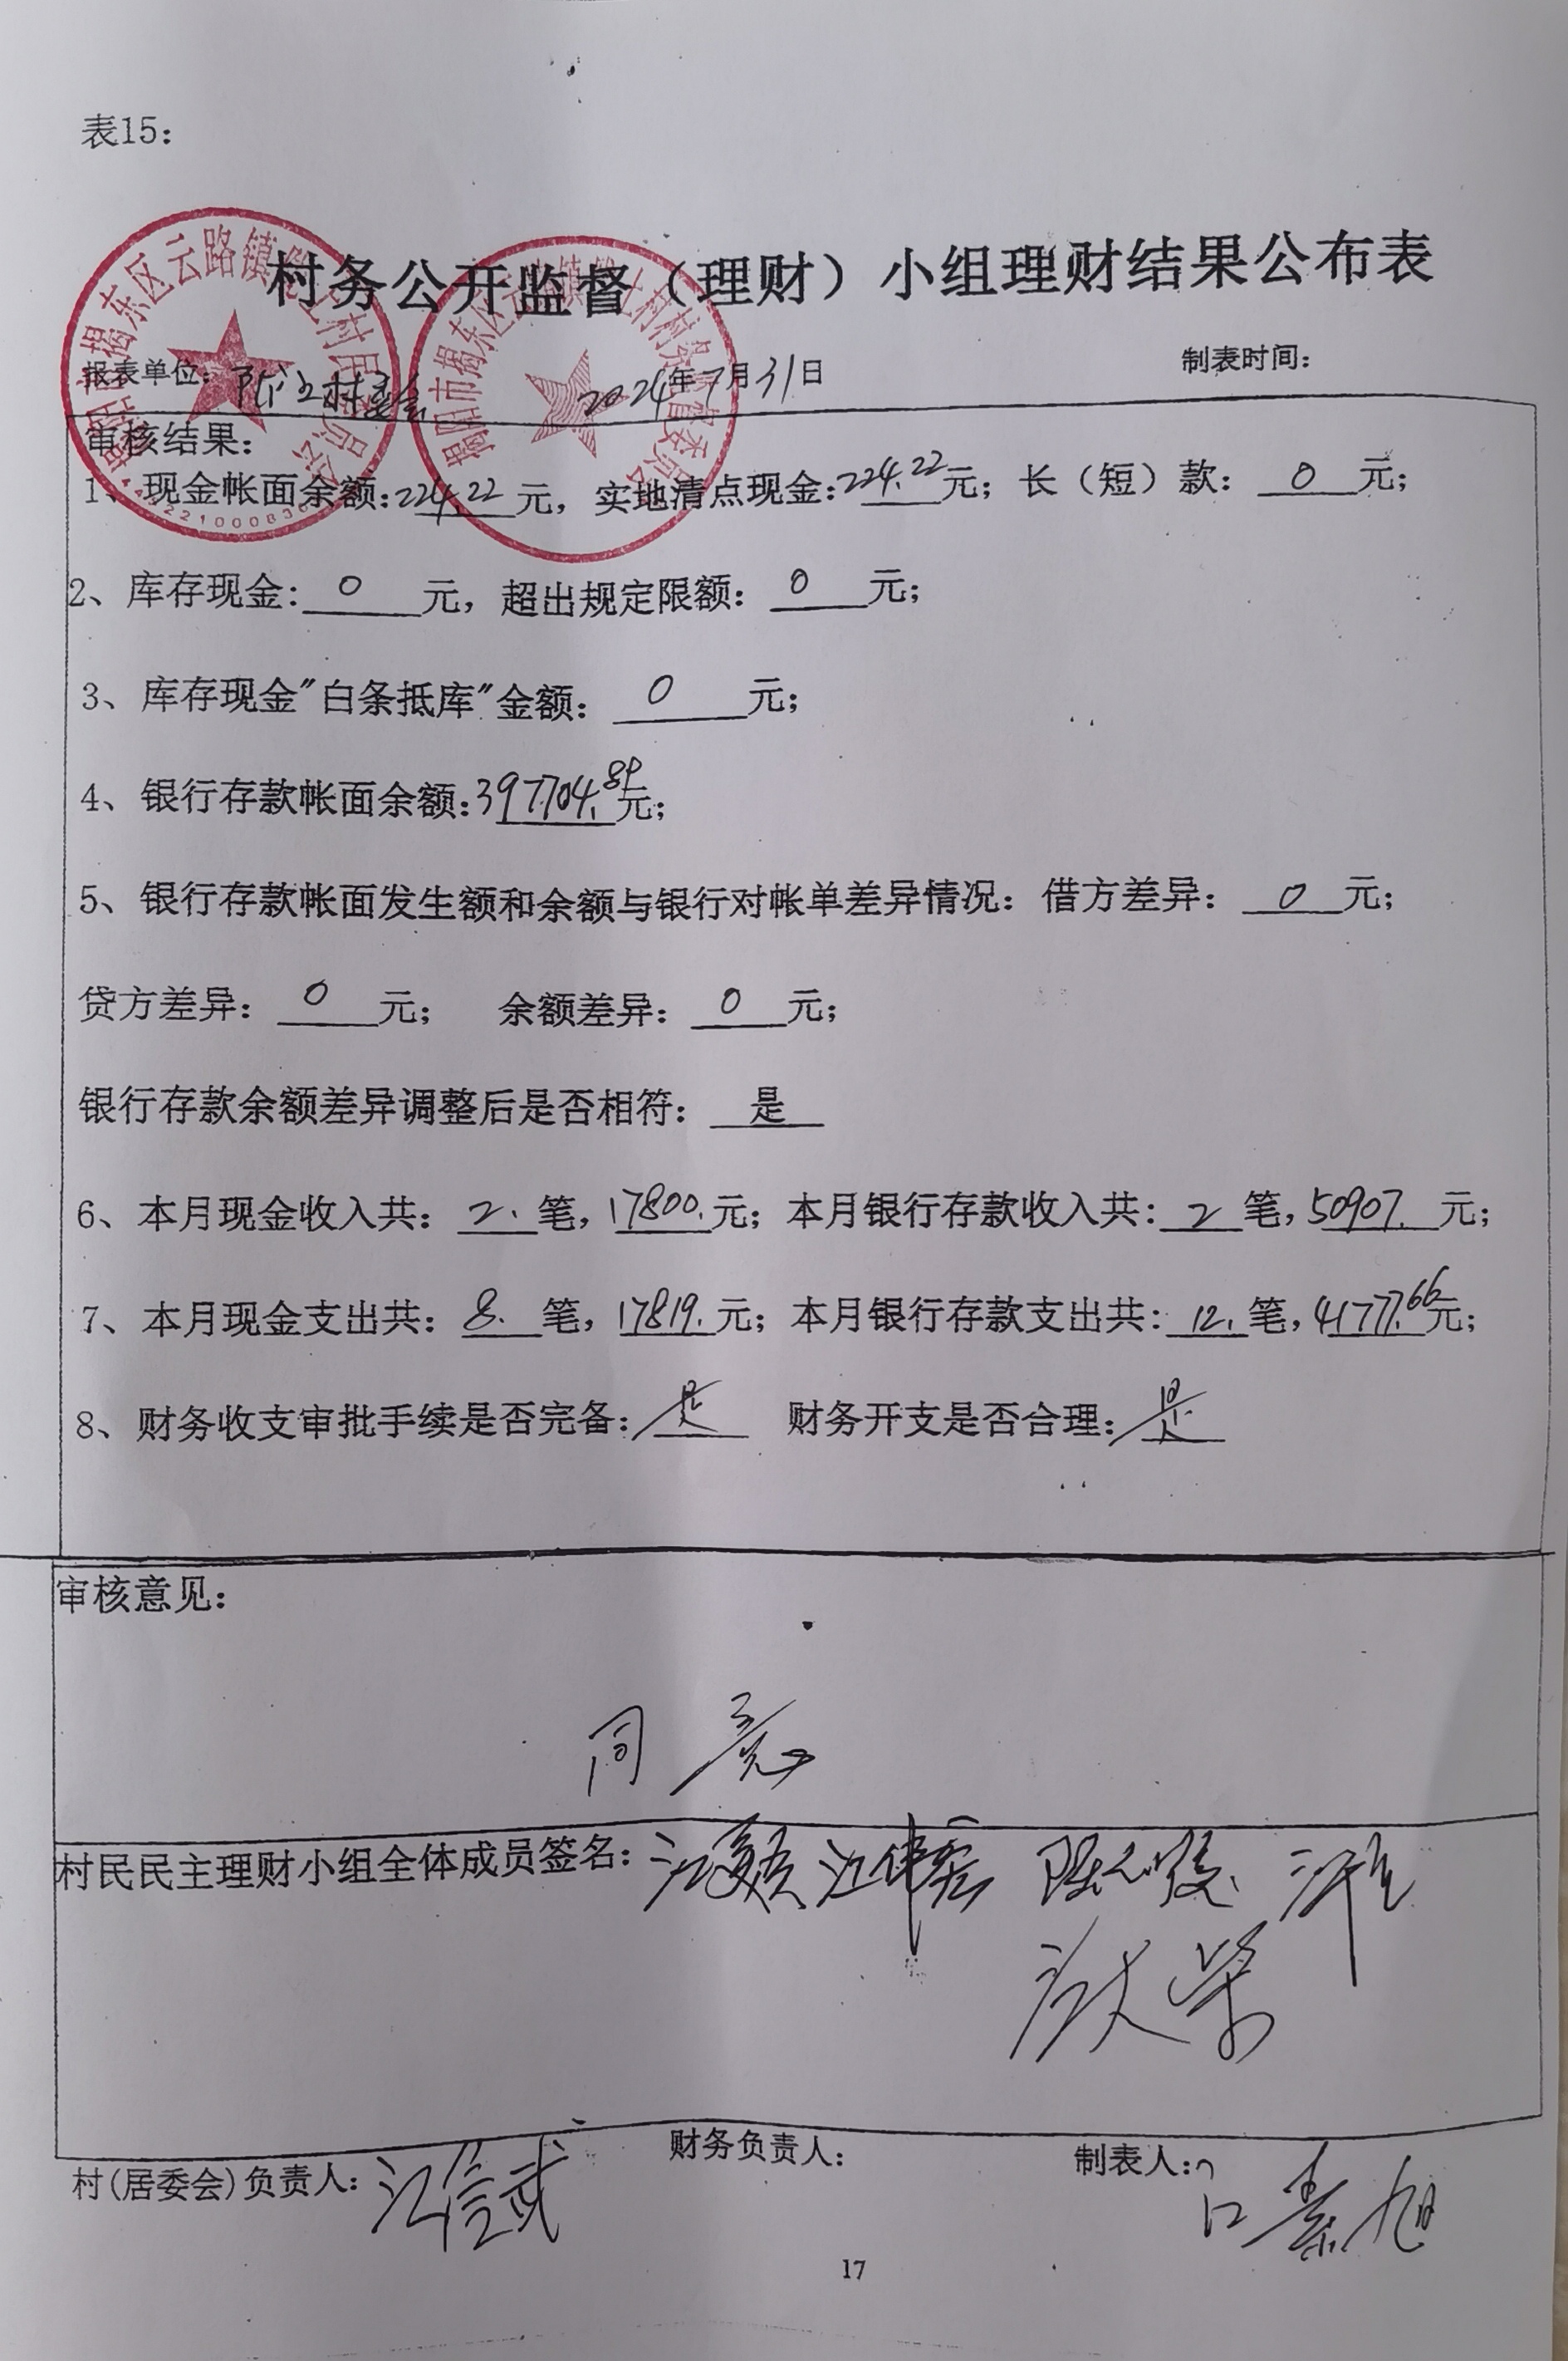 表15：
村务公开监督（理财）小组理财结果公布表
报表单位： 村委会 2024年7月31日 制表时间：
审核结果：
1、现金帐面余额：224.22元，实地清点现金：224.22元；长（短）款：0元；
2、库存现金：0元，超出规定限额：0元；
3、库存现金"白条抵库"金额：0元；
4、银行存款帐面余额：397704.89元；
5、银行存款帐面发生额和余额与银行对帐单差异情况：借方差异：0元；
贷方差异：0元； 余额差异：0元；
银行存款余额差异调整后是否相符：是
6、本月现金收入共：2.笔，17800.元；本月银行存款收入共：2笔，50907.元；
7、本月现金支出共：8.笔，17819.元；本月银行存款支出共：12.笔，41777.66元；
8、财务收支审批手续是否完备：是 财务开支是否合理：是
审核意见：
同意
村民民主理财小组全体成员签名：
村(居委会)负责人：江信武 财务负责人： 制表人：
17